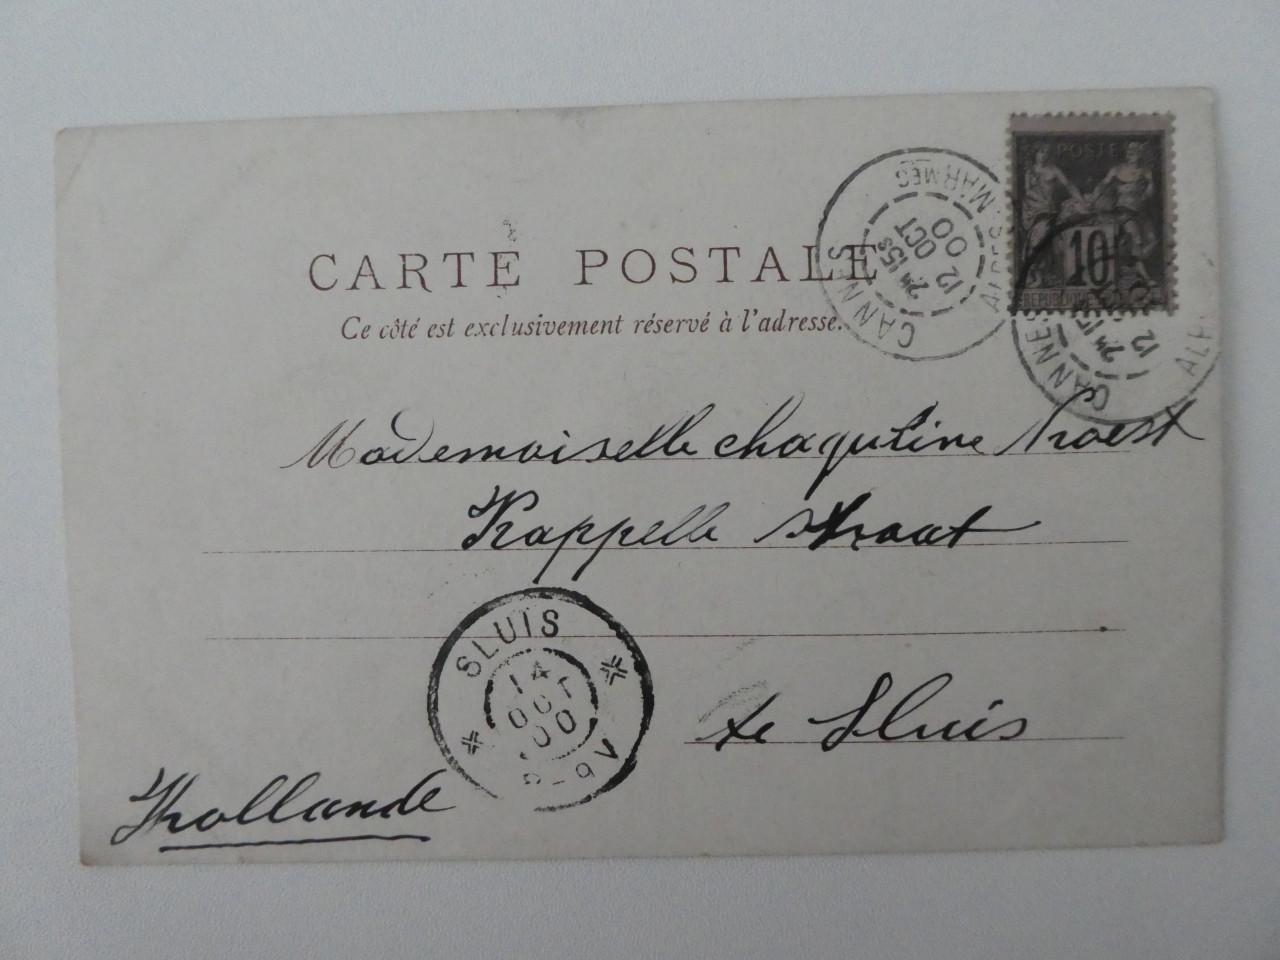 CARTE POSTALE
Ce côté est exclusivement réservé à l'adresse.
CANNES ALPES-MARMES
2M 15S
12 OCT
00
POSTE
10
REPUBLIQUE
CANNES ALP
2M 15
12
Mademoiselle chaquline
Kappelle straat
te Sluis
Hollande
SLUIS
14
OCT
00
8-9V